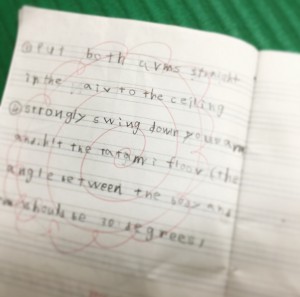 ① Put both arms straight
in the air to the ceiling
② strongly swing down your arm
and hit the tatami floor (the
angle between the body and
should be 30 degrees)